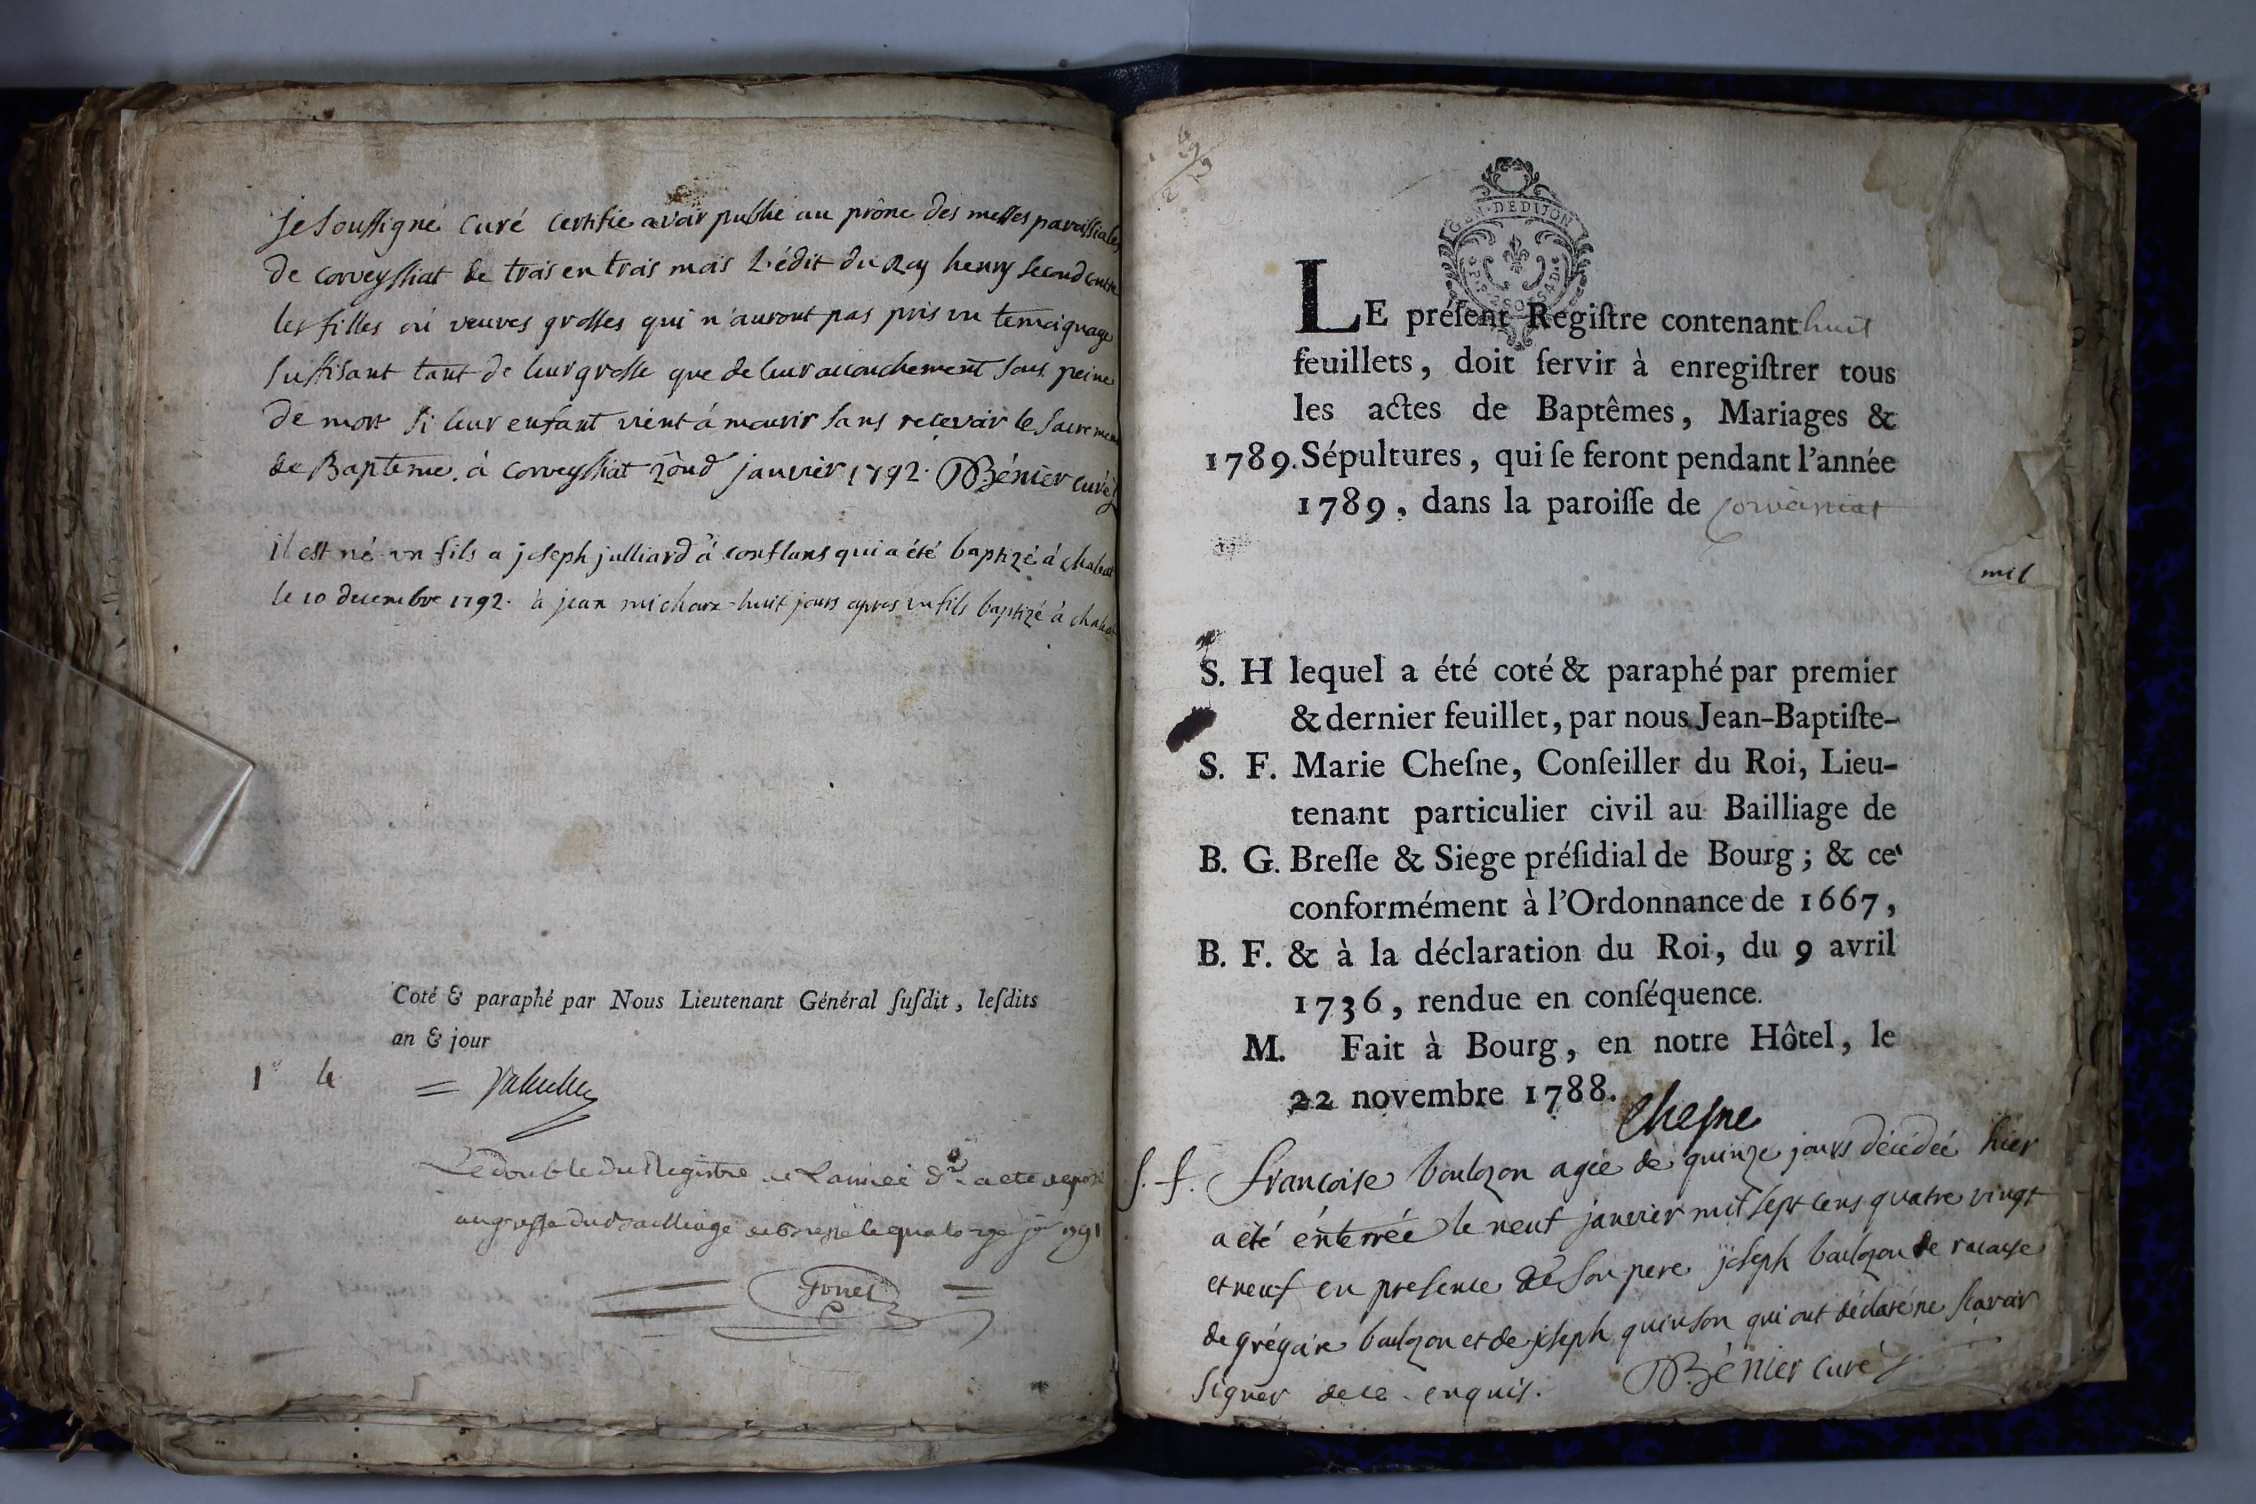 je soussigné curé certifie avoir publié au prône des messes paroissiales
de corveyssiat de trois en trois mois l'édit du Roy henry second contre
les filles ou veuves grosses qui n'auront pas pris un temoignage
suffisant tant de leur grosse que de leur accouchement sous peine
de mort si leur enfant vient à mourir sans recevoir le sacrement
de Bapteme. à corveyssiat janvier 1792. Bénier curé
il est né un fils a joseph julliard à conflans qui a été baptizé à
le 10 decembre 1792. à jean huit jours apres un fils baptizé à
Coté & paraphé par Nous Lieutenant Général ſuſdit, leſdits
an & jour
Le double du Registre de L'année a ete deposé
au greffe du Bailliage de bresse le quatorze 1791
Gonet
GEN. DE DIJON
LE préſent Regiſtre contenant huit
feuillets, doit ſervir à enregiſtrer tous
les actes de Baptêmes, Mariages &
1789. Sépultures, qui ſe feront pendant l'année
1789, dans la paroiſſe de
mil
S. H lequel a été coté & paraphé par premier
& dernier feuillet, par nous Jean-Baptiſte-
S. F. Marie Cheſne, Conſeiller du Roi, Lieu-
tenant particulier civil au Bailliage de
B. G. Breſſe & Siege préſidial de Bourg; & ce
conformément à l'Ordonnance de 1667,
B. F. & à la déclaration du Roi, du 9 avril
1736, rendue en conſéquence.
M. Fait à Bourg, en notre Hôtel, le
22 novembre 1788.
Chesne
s. f. francoise boulozon agée de quinze jours décédée hier
a été énterrée le neuf janvier mil sept cens quatre vingt
et neuf en presence de son pere joseph boulozon de
de grégoire boulozon et de joseph quinson qui ont déclaré ne scavoir
signer de ce enquis. Bénier curé